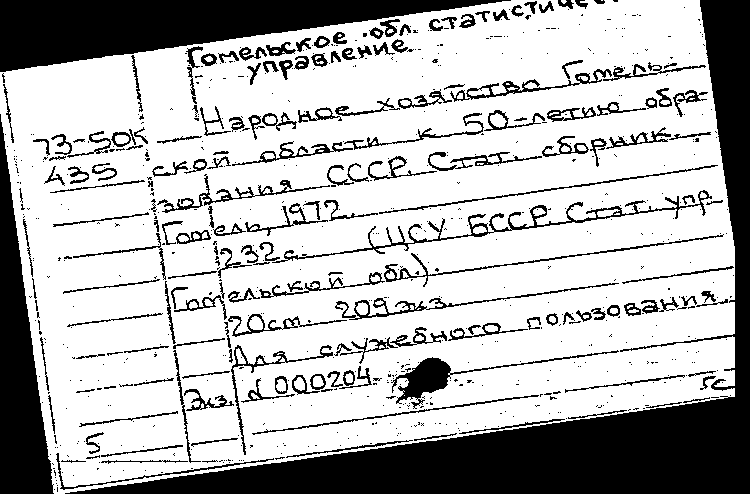 Гомельское обл. статистичес
управление.
Народное хозяйство Гомель-
73-50К
ской области к 50-летию обра-
435
зования СССР. Стат. сборник.
Гомель, 1972.
232с. (ЦСУ БССР. Стат. упр.
Гомельской обл.).
20см. 209 экз.
Для служебного пользования.
Экз. № 000204
5